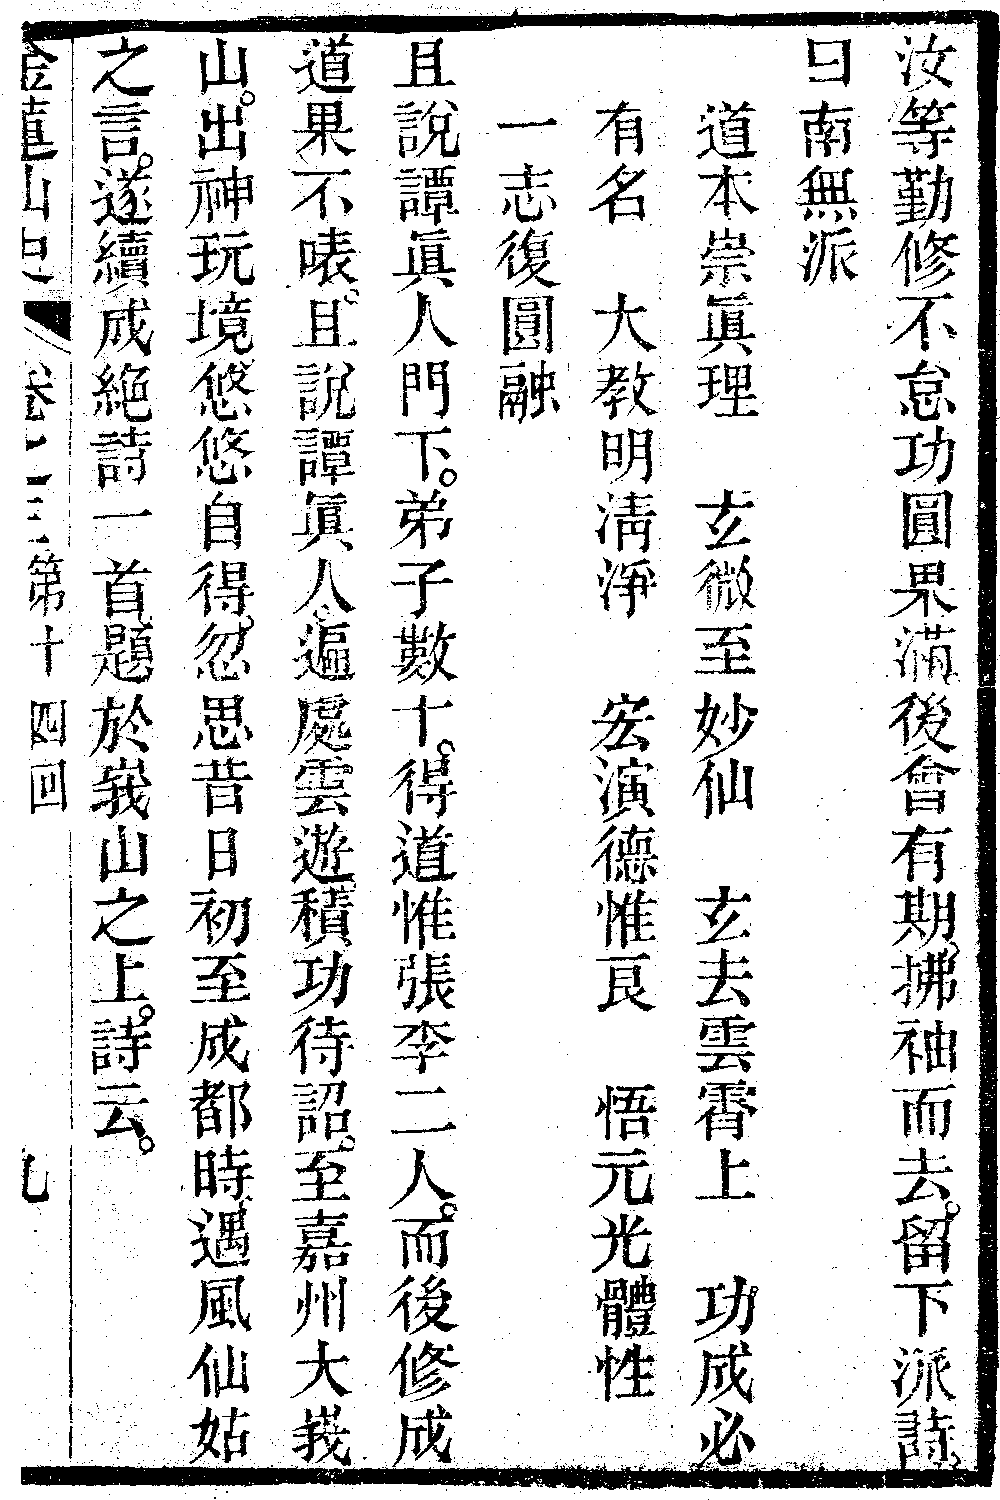 汝等勤修不怠功圓果滿後會有期拂袖而去。留下派詩
曰南無派
道本崇眞理　玄微至妙仙　玄去雲霄上　功成必
有名　大教明清淨　宏演德惟良　悟元光體性
一志復圓融
且說譚眞人門下。弟子數十。得道惟張李二人。而後修成
道果不表。且說譚眞人。遍處雲遊。積功待詔。至嘉州大峩
山。出神玩境悠悠自得。忽思昔日初至成都時遇風仙姑
之言。遂續成絕詩一首題於峩山之上。詩云。
山史　卷之三第十四回　九